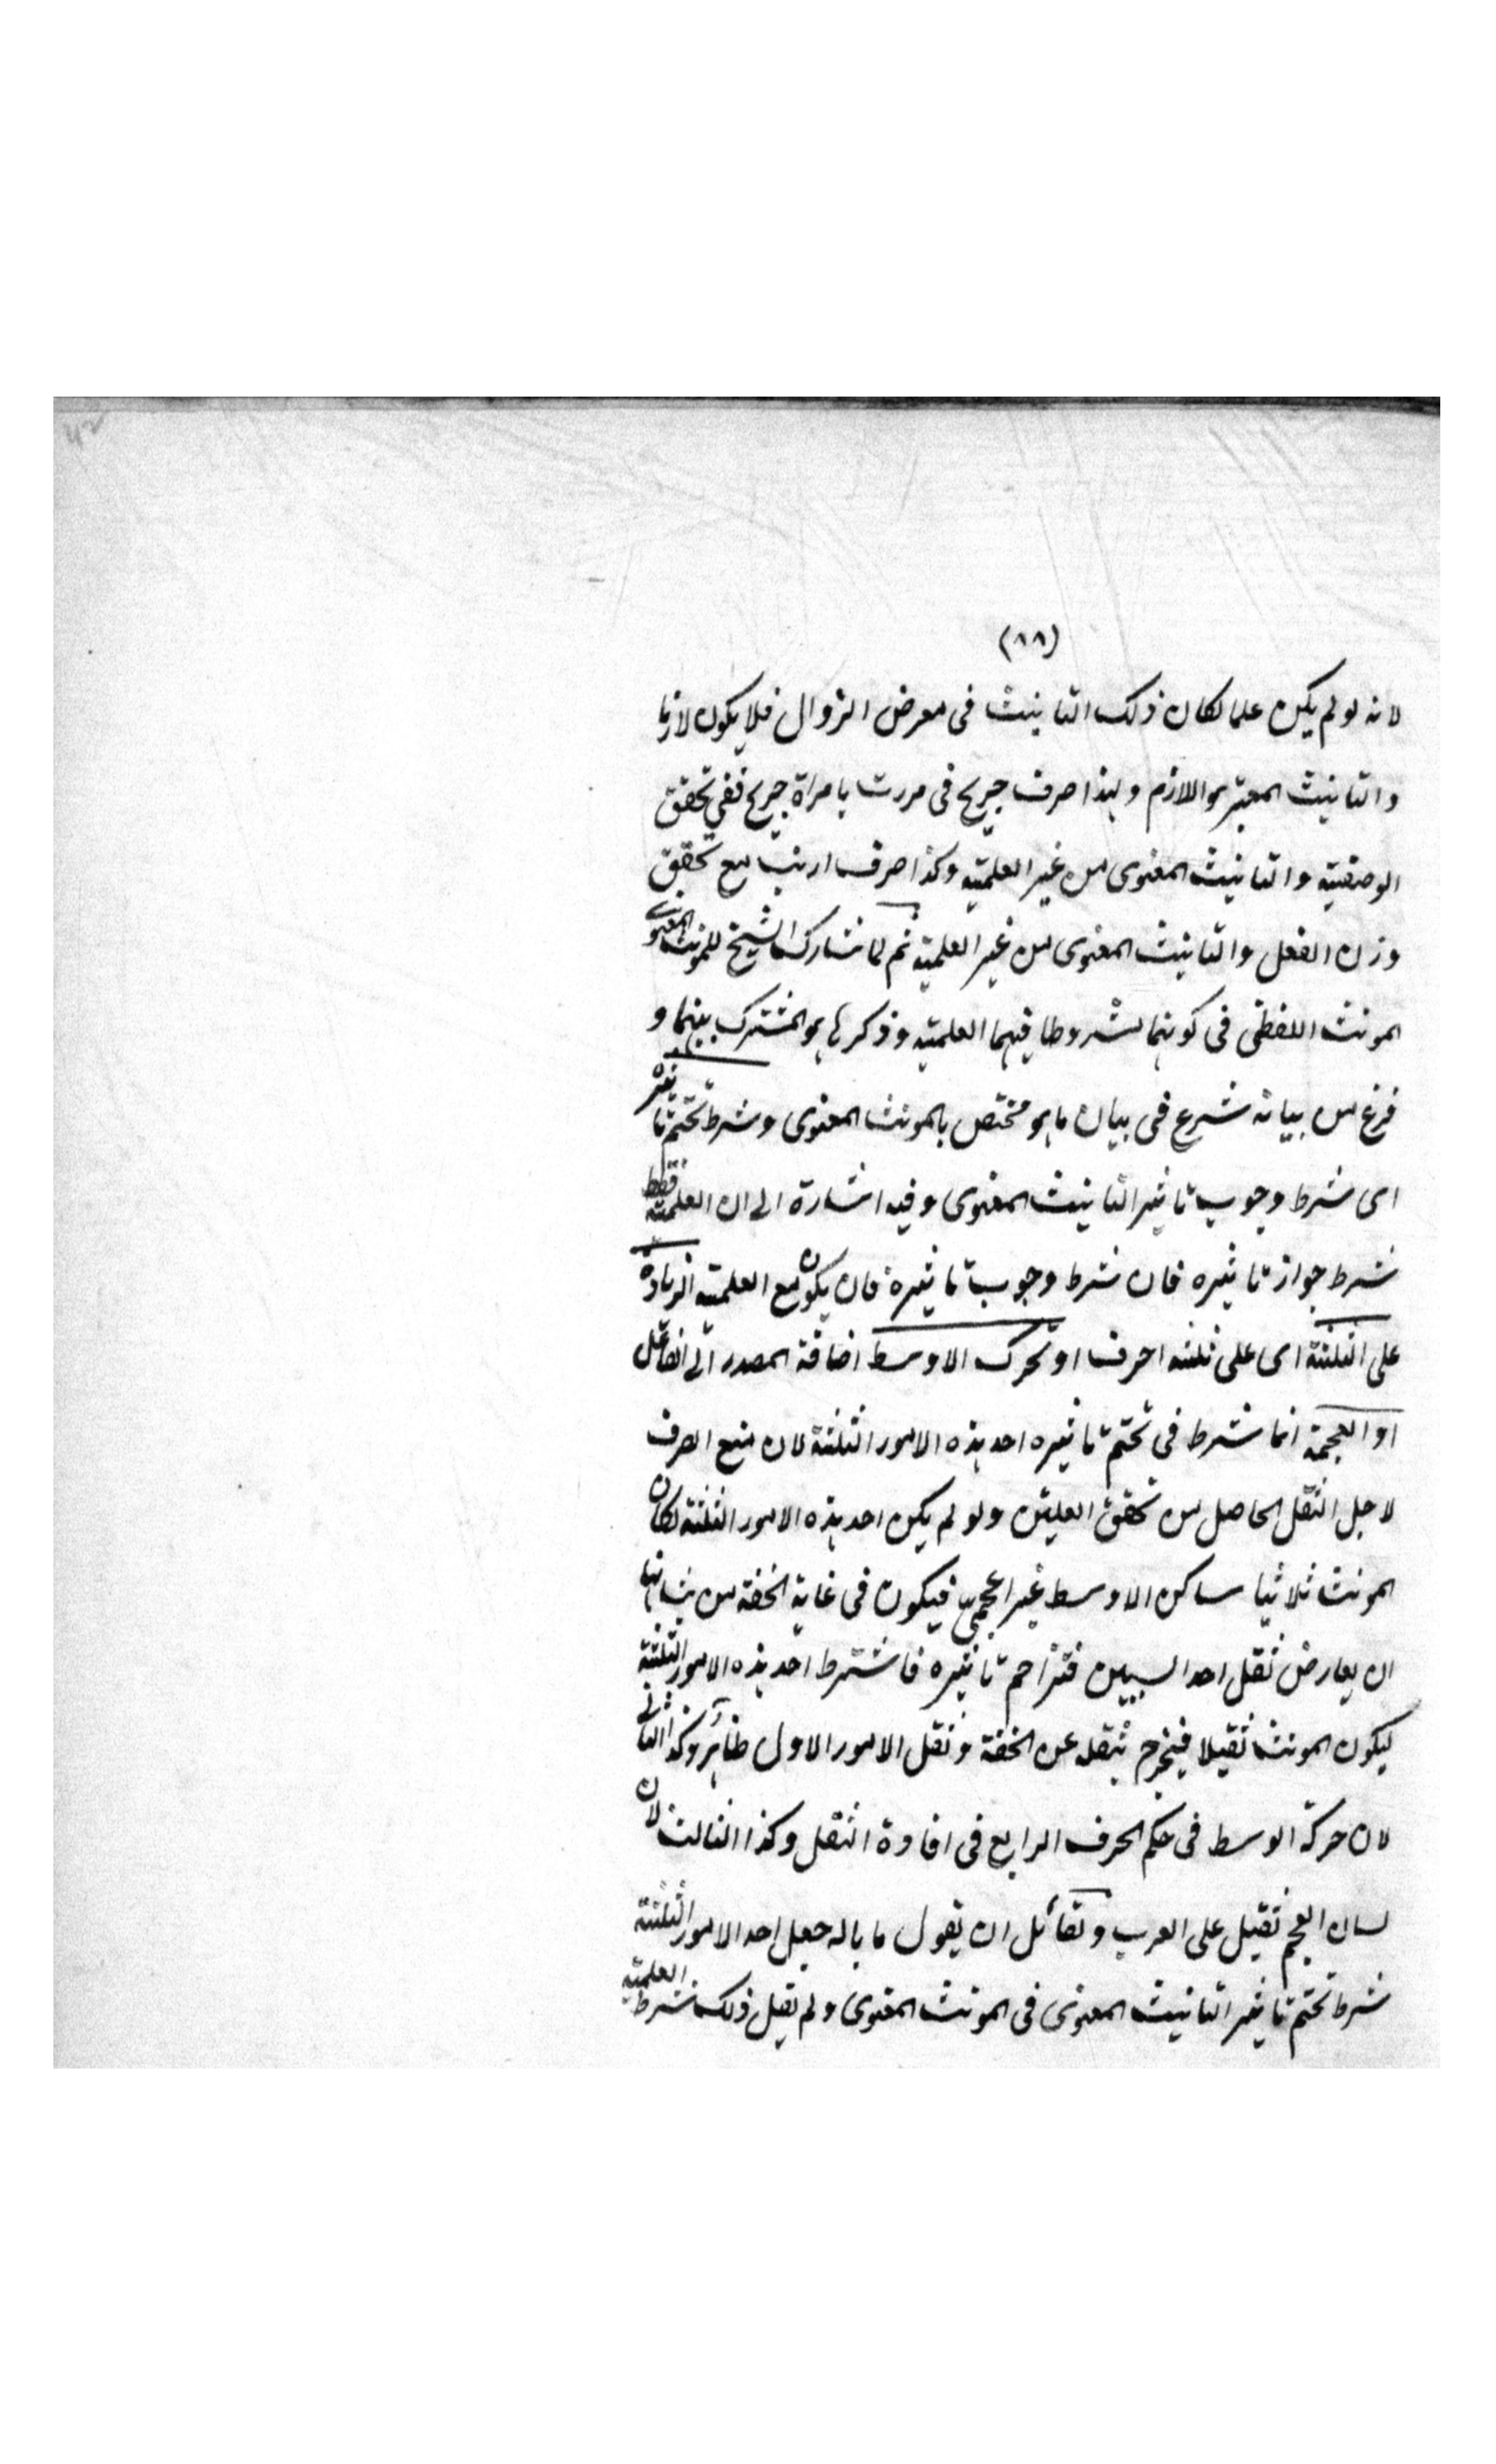 (٨٨)
لانه لو لم يكن علما لكان ذلك التانيث فى معرض الزوال فلا يكون لازما
والتانيث المعتبر هو اللازم ولهذا صرف جريح فى مررت بامراة جريح ففى تحقق
الوصفية والتانيث المعنوى من غير العلمية وكذا صرف ارنب مع تحقق
وزن الفعل والتانيث المعنوى من غير العلمية ثم لما شارك الشيخ للمونث المعنوى
المونث اللفظى فى كونهما مشروطا فيهما العلمية وذكر ما هو المشترك بينهما و
فرغ من بيانه شرع فى بيان ما هو مختص بالمونث المعنوى وشرط تحتم تاثيره
اى شرط وجوب تاثير التانيث المعنوى وفيه اشارة الى ان العلمية فقط
شرط جواز تاثيره فان شرط وجوب تاثيره فان يكون مع العلمية الزيادة
على الثلثة اى على ثلثه احرف او تحرك الاوسط اضافة المصدر الى الفاعل
او العجمة انما شرط فى تحتم تاثيره احد هذه الامور الثلثة لان منع الصرف
لاجل الثقل الحاصل من تحقق العلتين ولو لم يكن احد هذه الامور الثلثة لكان
المونث ثلاثيا ساكن الاوسط غير اعجمى فيكون فى غاية الخفة من شانها
ان يعارض ثقل احد السببين فتزاحم تاثيره فاشترط احد هذه الامور الثلثة
ليكون المونث ثقيلا فيخرج بثقله عن الخفة وثقل الامور الاول ظاهر وكذا الثانى
لان حركة الوسط فى حكم الحرف الرابع فى افادة الثقل وكذا الثالث لان
لسان العجم ثقيل على العرب ولقائل ان يقول ما باله جعل احد الامور الثلثة
شرط تحتم تاثير التانيث المعنوى فى المونث المعنوى ولم يقل ذلك شرط العلمية